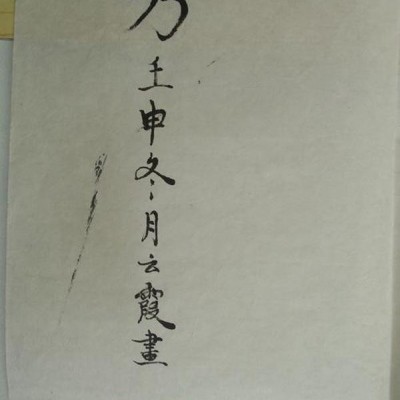 乃
壬申冬月云霞畫